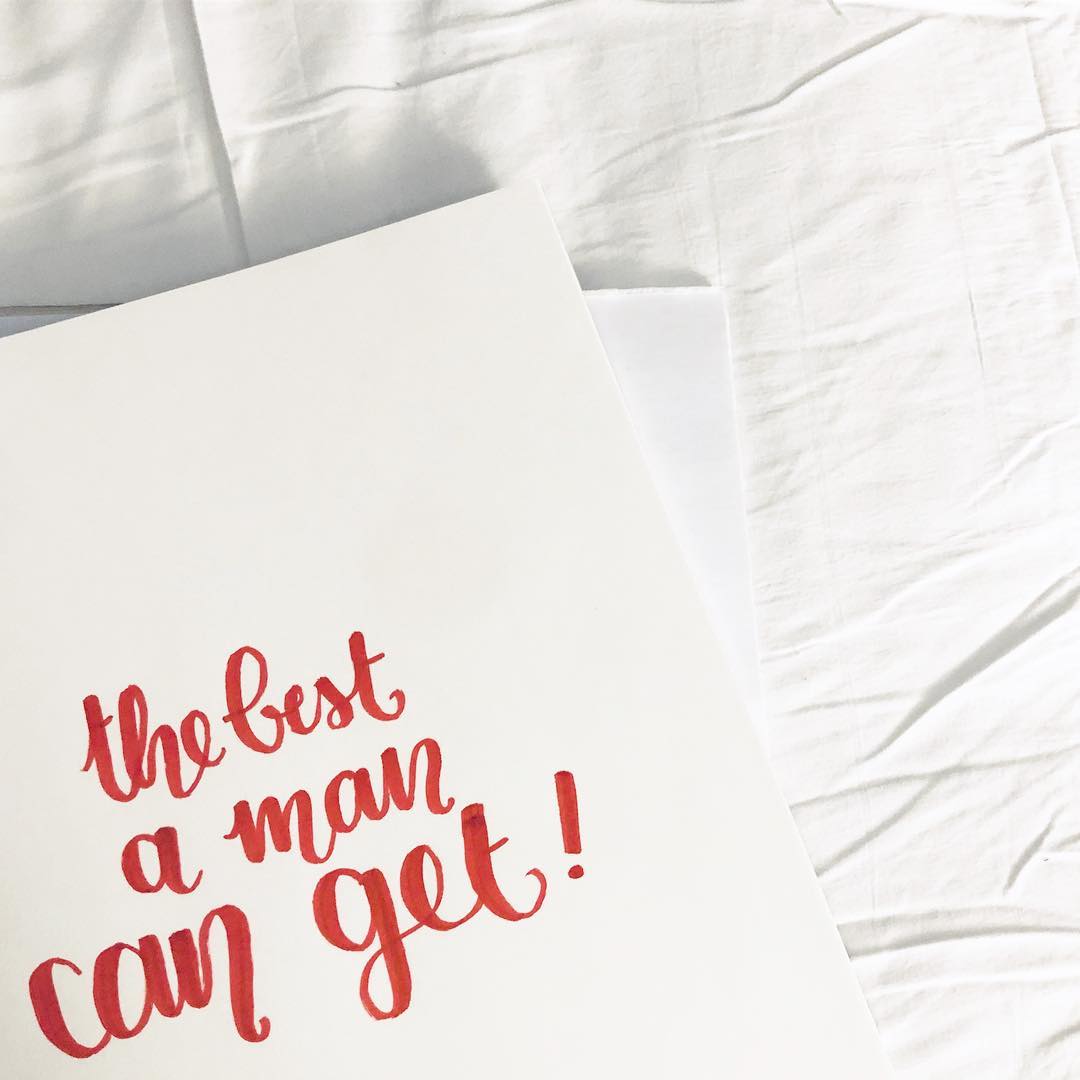 the best
a man
can get!